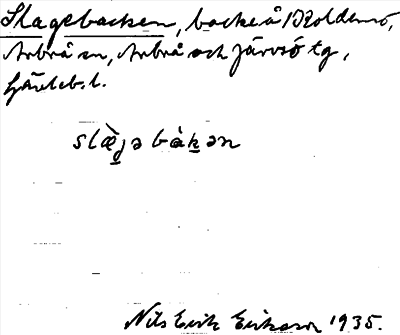 Slagebacken, backe å Koldemo,
Arbrå sn, Arbrå och Järvsö tg,
Gävleb. l.
slæ̀jə bàkən
Nils Erik Eriksson 1935.